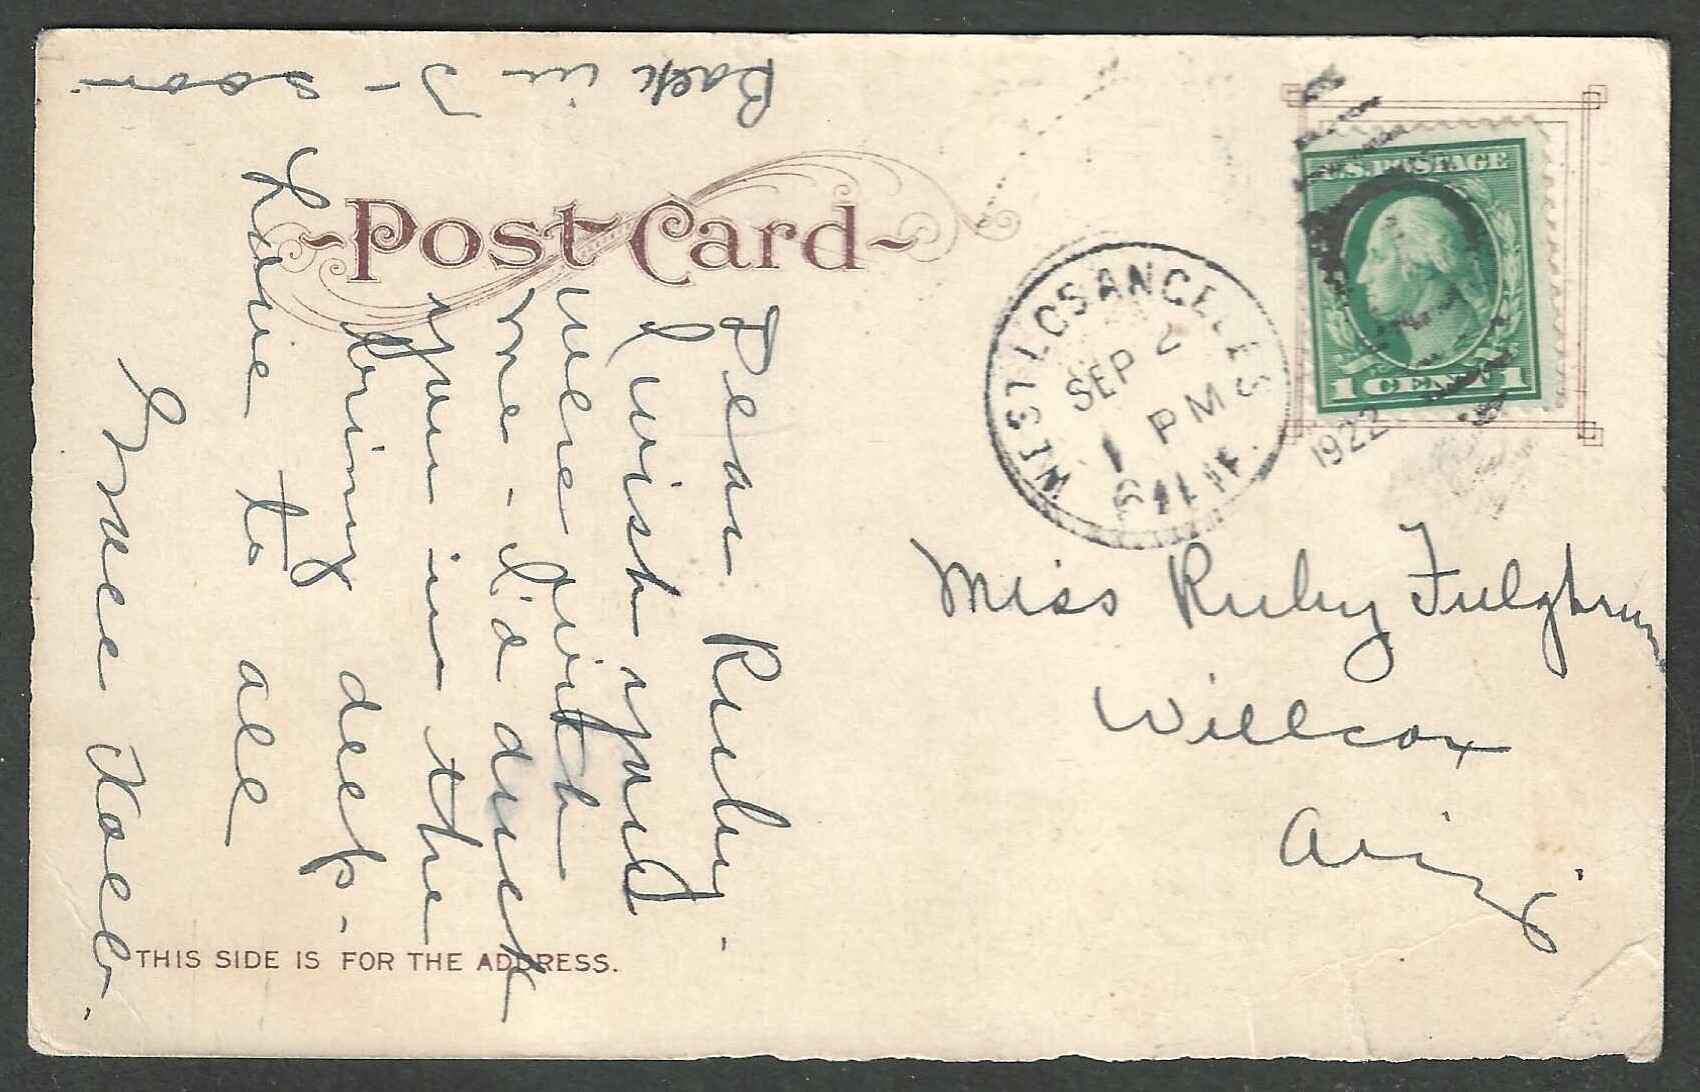 Post Card
U.S. POSTAGE
1 CENT 1
WEST LOS ANGELES
SEP 2
1 PM
1922
CALIF.
Miss Ruby Fulghum
Willcox
Ariz.
Dear Ruby,
I wish you
were with
me - I'd duck
you in the
briny deep -
Love to all
Grace
Back in J - soon
THIS SIDE IS FOR THE ADDRESS.